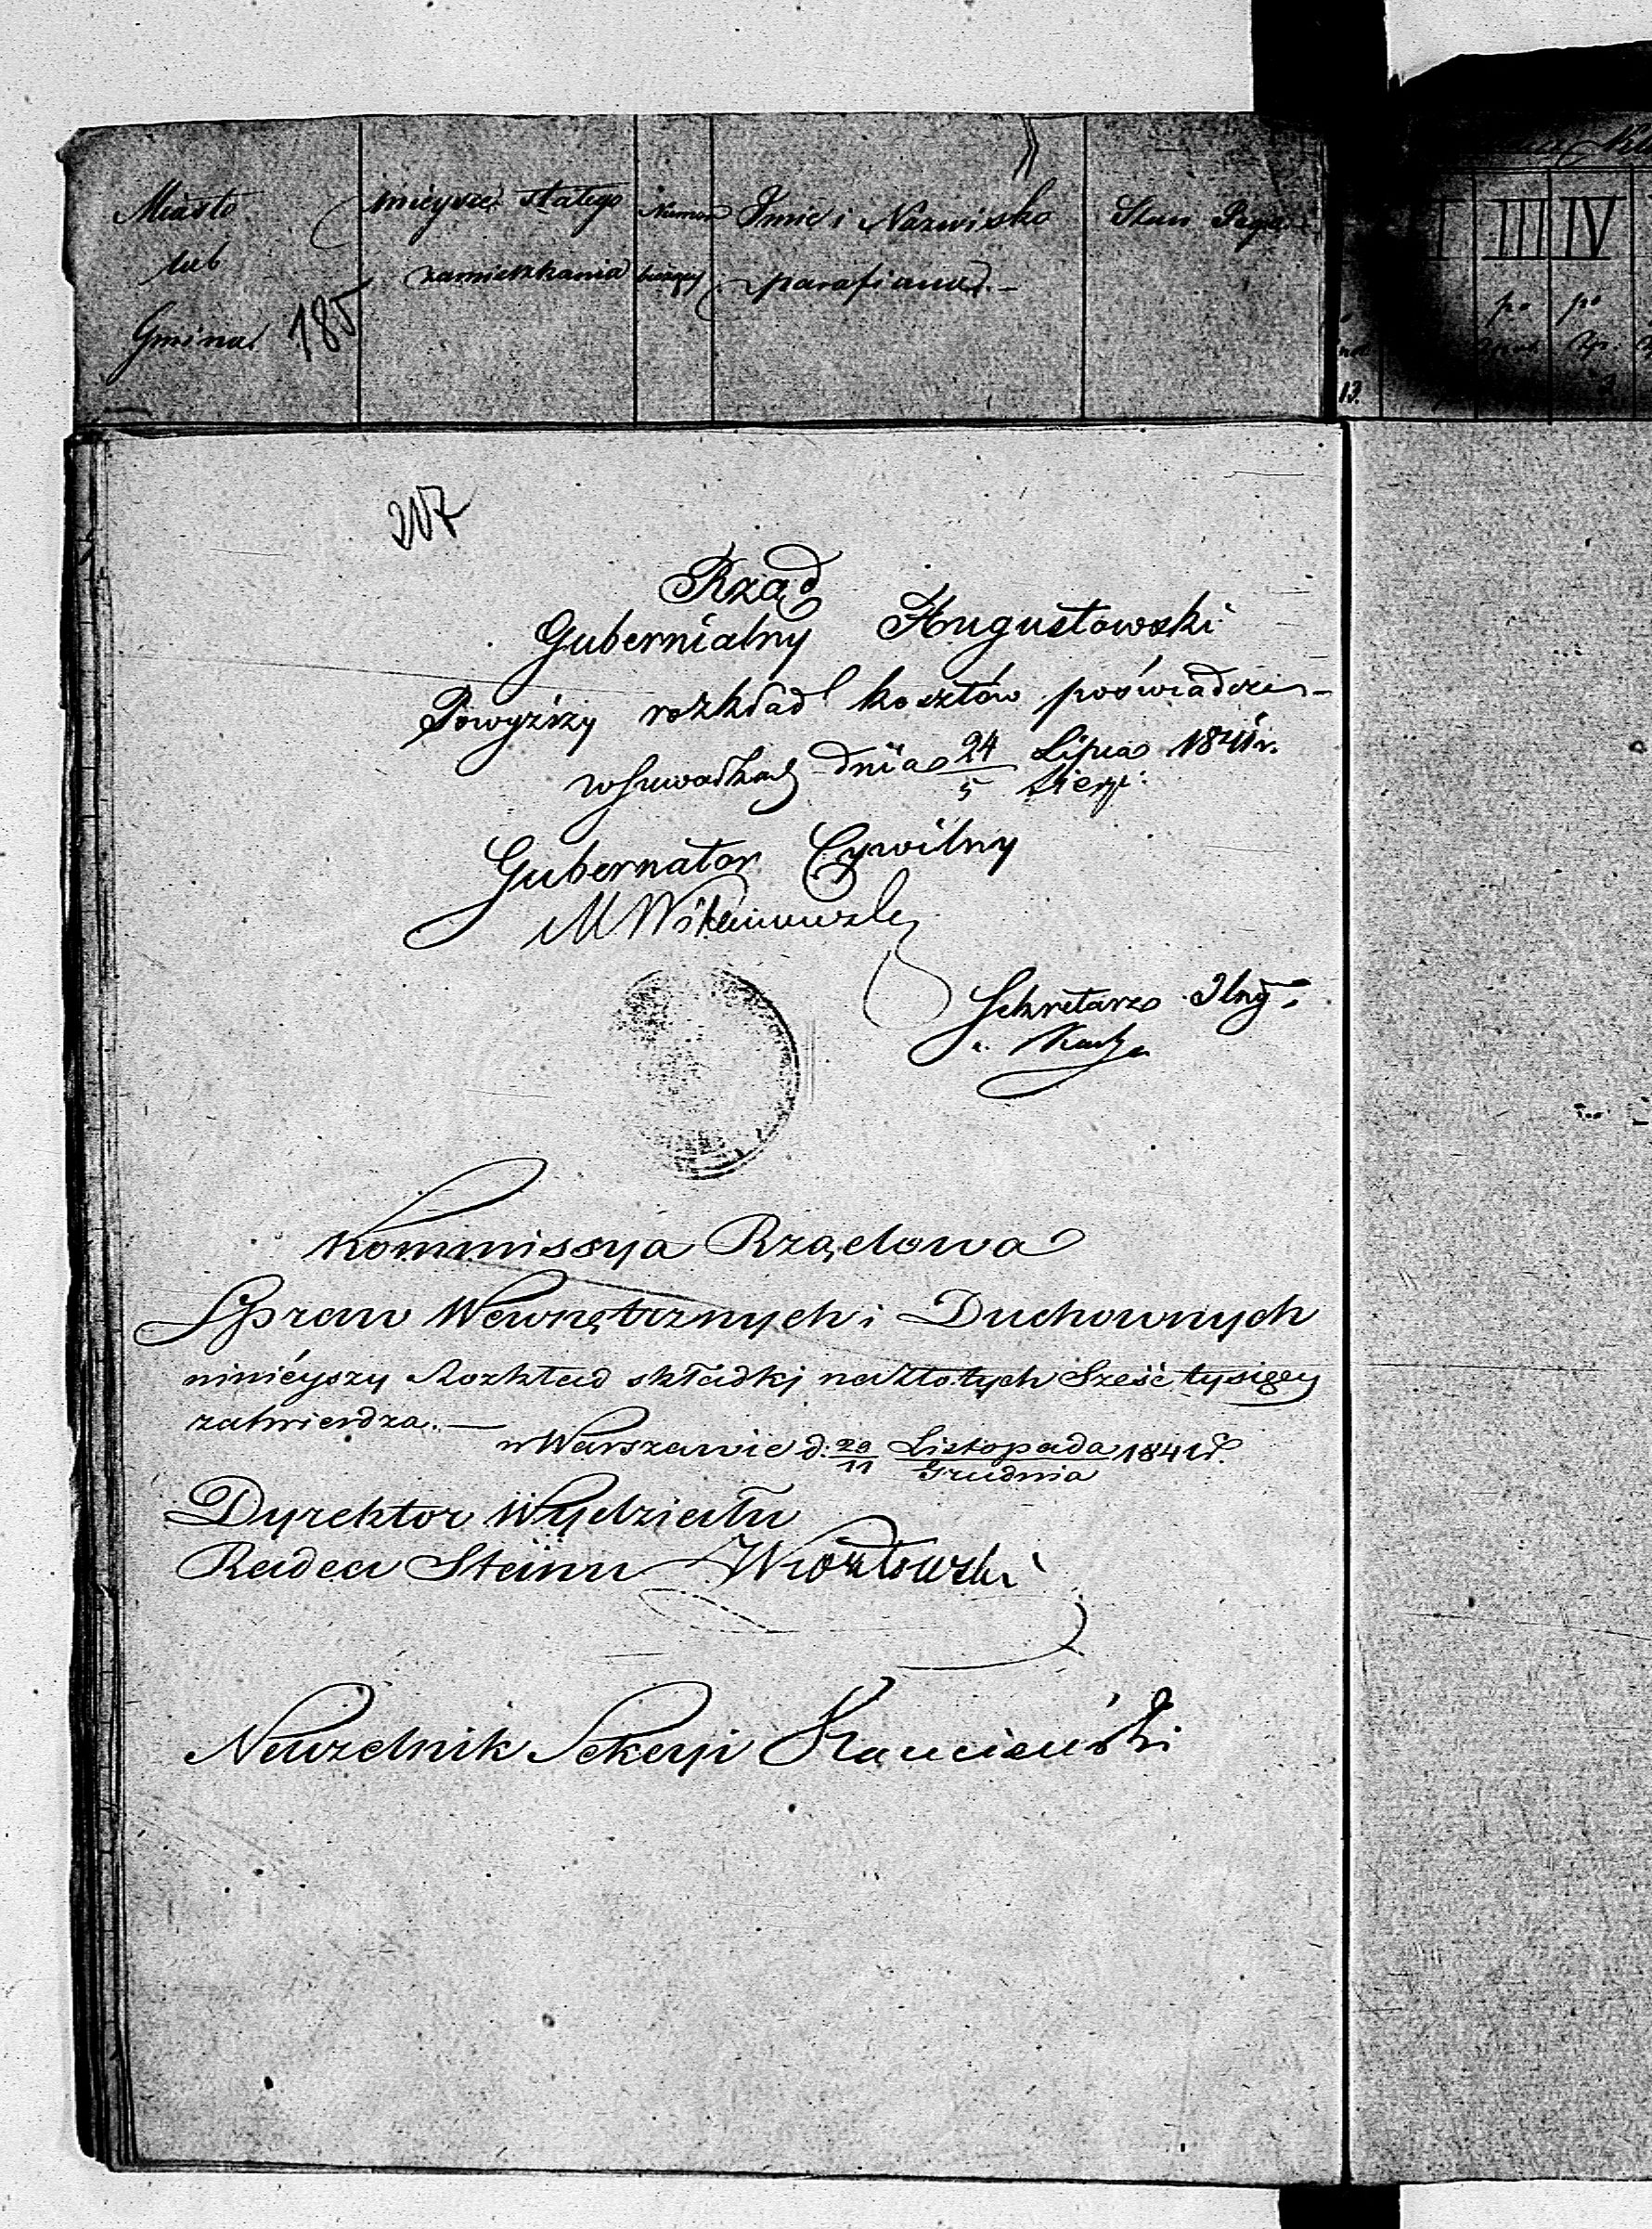 Miasto
lub
Gmina
185
miejsce stałego
zamieszkania
Numer
bieżący
Imie i Nazwisko
parafiana
Stan
III IV
po po
13.
207
Rząd
Gubernialny Augustowski
Powyższy rozkład kosztów poświadcza
w Suwałkach dnia 24/5 Lipca/Sierp: 1841 r.
Gubernator Cywilny
M
Sekretarz Jlny
Kommissya Rządowa
Spraw Wewnętrznych i Duchownych
ninieyszy Rozkład składki na Złotych Sześć tysięcy
zatwierdza. —
w Warszawie d: 29/11 Listopada/Grudnia 1841 r.
Dyrektor Wydziału
Radca Stanu
Naczelnik Sekcyi